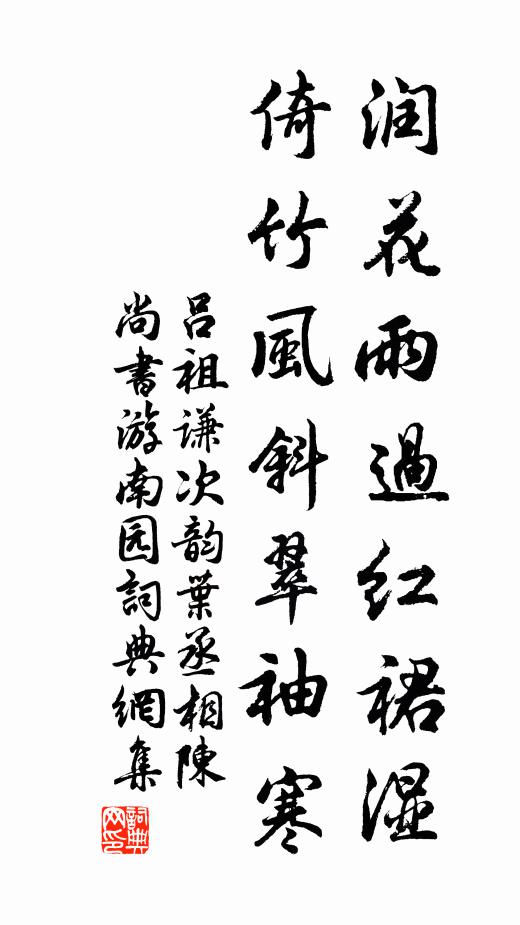 润花雨過红裙湿
倚竹風斜翠袖寒
吕祖谦次韵葉丞相陳
尚書游南园詞典網集
詞典
网印